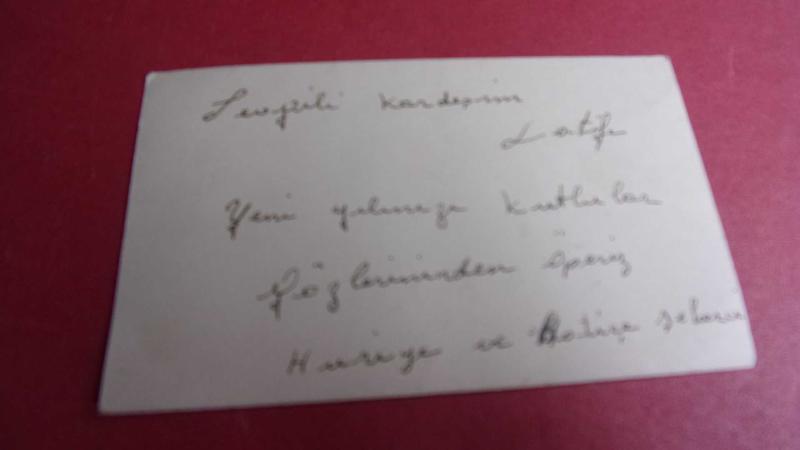 Sevgili kardeşim
Latif
Yeni yılınızı kutlular
Gözlerinizden öperiz
Huriye ve